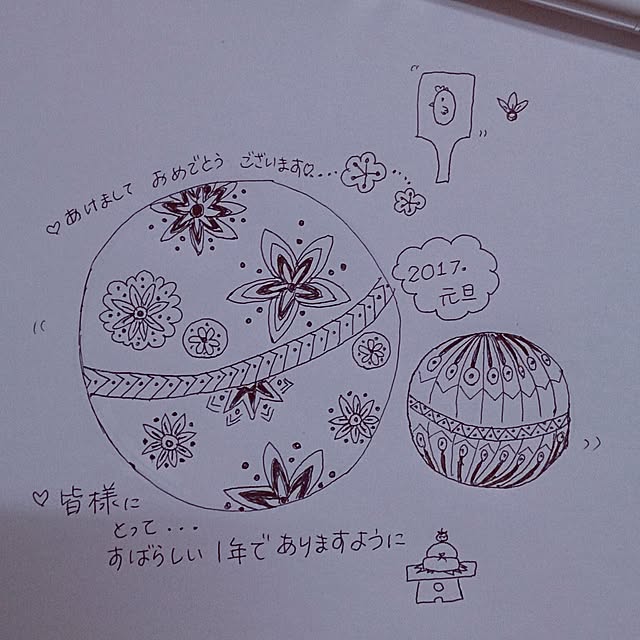 ♡あけまして おめでとう ございます♡...
2017.
元旦
♡皆様に
とって...
すばらしい 1年で ありますように